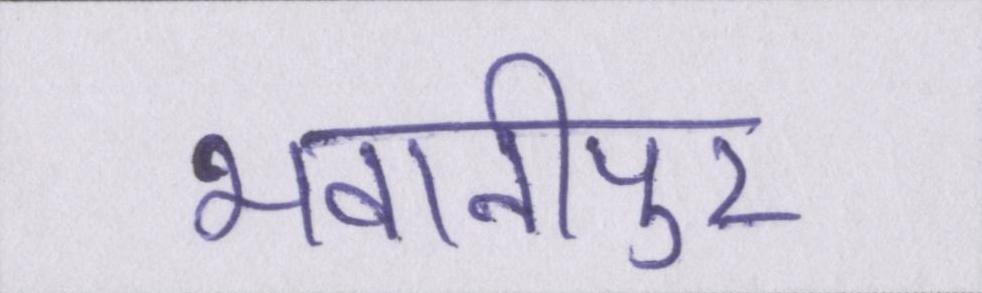 भवानीपुर